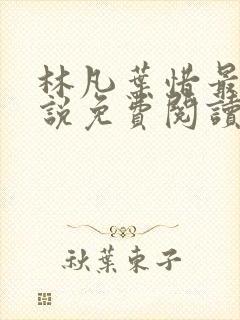 林凡葉惜最
說免費閱讀
秋葉東子